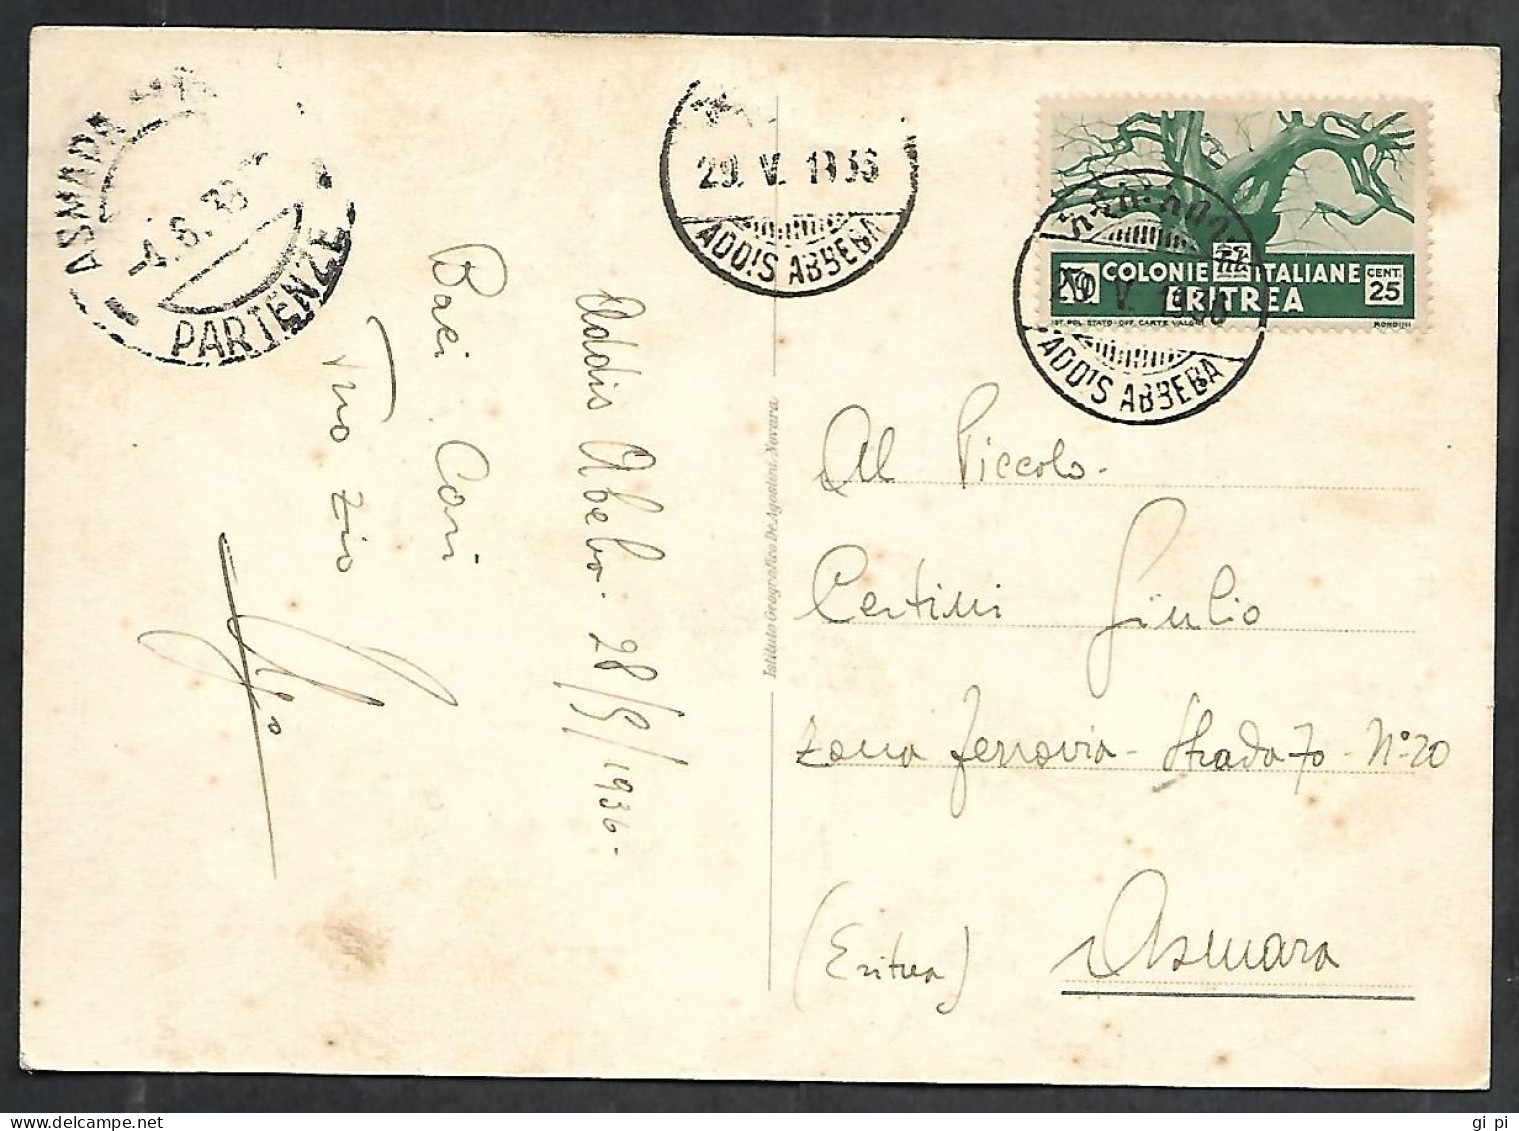 ASMARA
4.6.36
PARTENZE
29. V. 1936
ADDIS ABBEBA
COLONIE ITALIANE
ERITREA
CENT.
25
IST. POL. STATO-OFF. CARTE VALORI
29 V 1936
ADDIS ABBEBA
Addis Abeba. 28/5/1936.
Baci Cari
Tuo zio
Istituto Geografico De Agostini, Novara.
Al Piccolo.
Certini Giulio
Zona ferrovia - Strada 70 - N° 20
(Eritrea) Asmara
gi pi